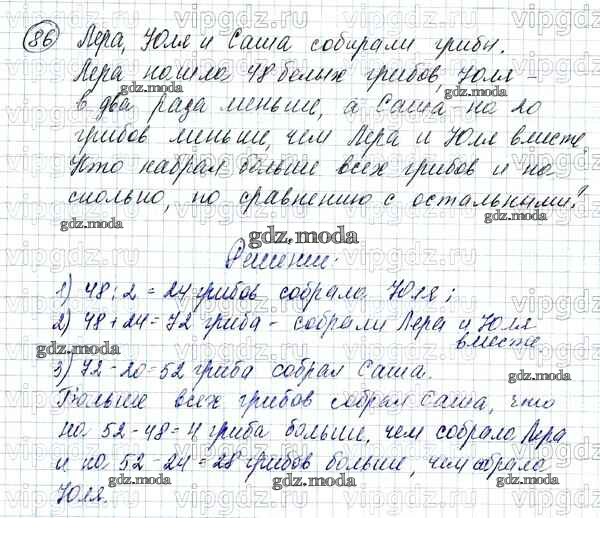 86 Лера, Юля и Саша собирали грибы.
Лера нашла 48 белых грибов, Юля -
в два раза меньше, а Саша на 20
грибов меньше, чем Лера и Юля вместе.
Кто набрал больше всех грибов и на
сколько, по сравнению с остальными?
gdz.moda
Решение.
1) 48 : 2 = 24 грибов собрала Юля;
2) 48 + 24 = 72 гриба - собрали Лера и Юля
вместе.
3) 72 - 20 = 52 гриба собрал Саша.
Больше всех грибов собрал Саша, что
на 52 - 48 = 4 гриба больше, чем собрала Лера
и на 52 - 24 = 28 грибов больше, чем собрала
Юля.